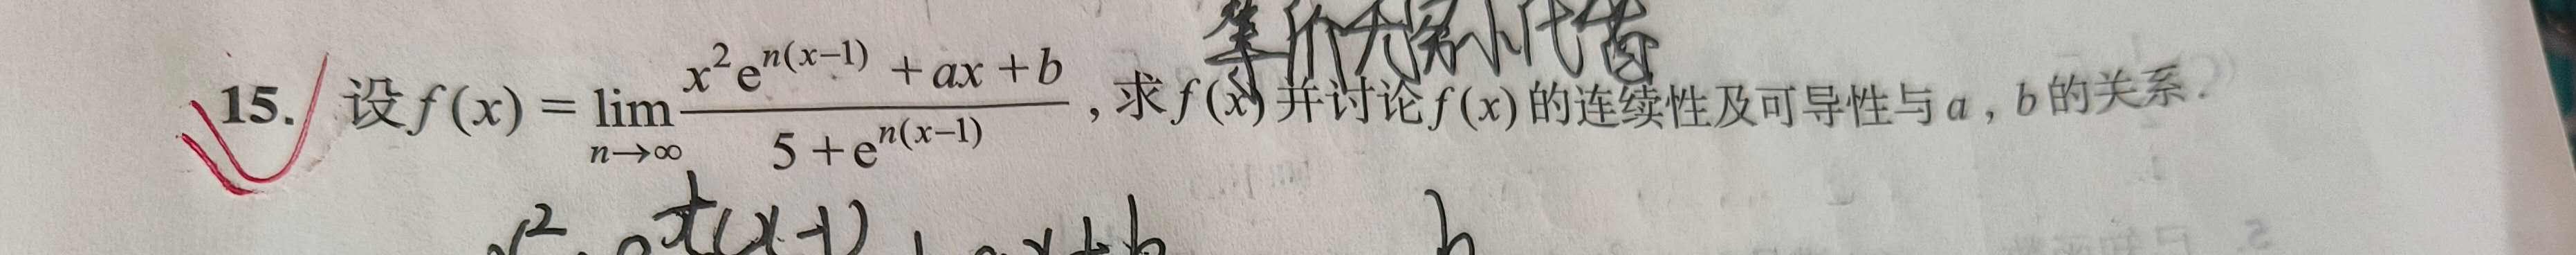 等价无穷小代替
15. 设 $f(x)=\lim\limits_{n\to\infty}\dfrac{x^2e^{n(x-1)}+ax+b}{5+e^{n(x-1)}}$, 求 $f(x)$ 并讨论 $f(x)$ 的连续性及可导性与 $a$, $b$ 的关系.